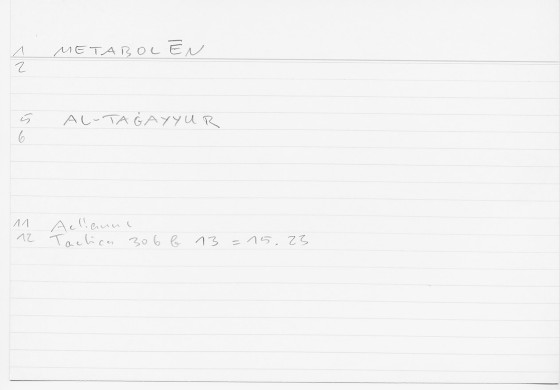 1 METABOLĒN
2
5 AL-TAĠAYYUR
6
11 Aelianus
12 Tactica 306 B 13 = 15. 23